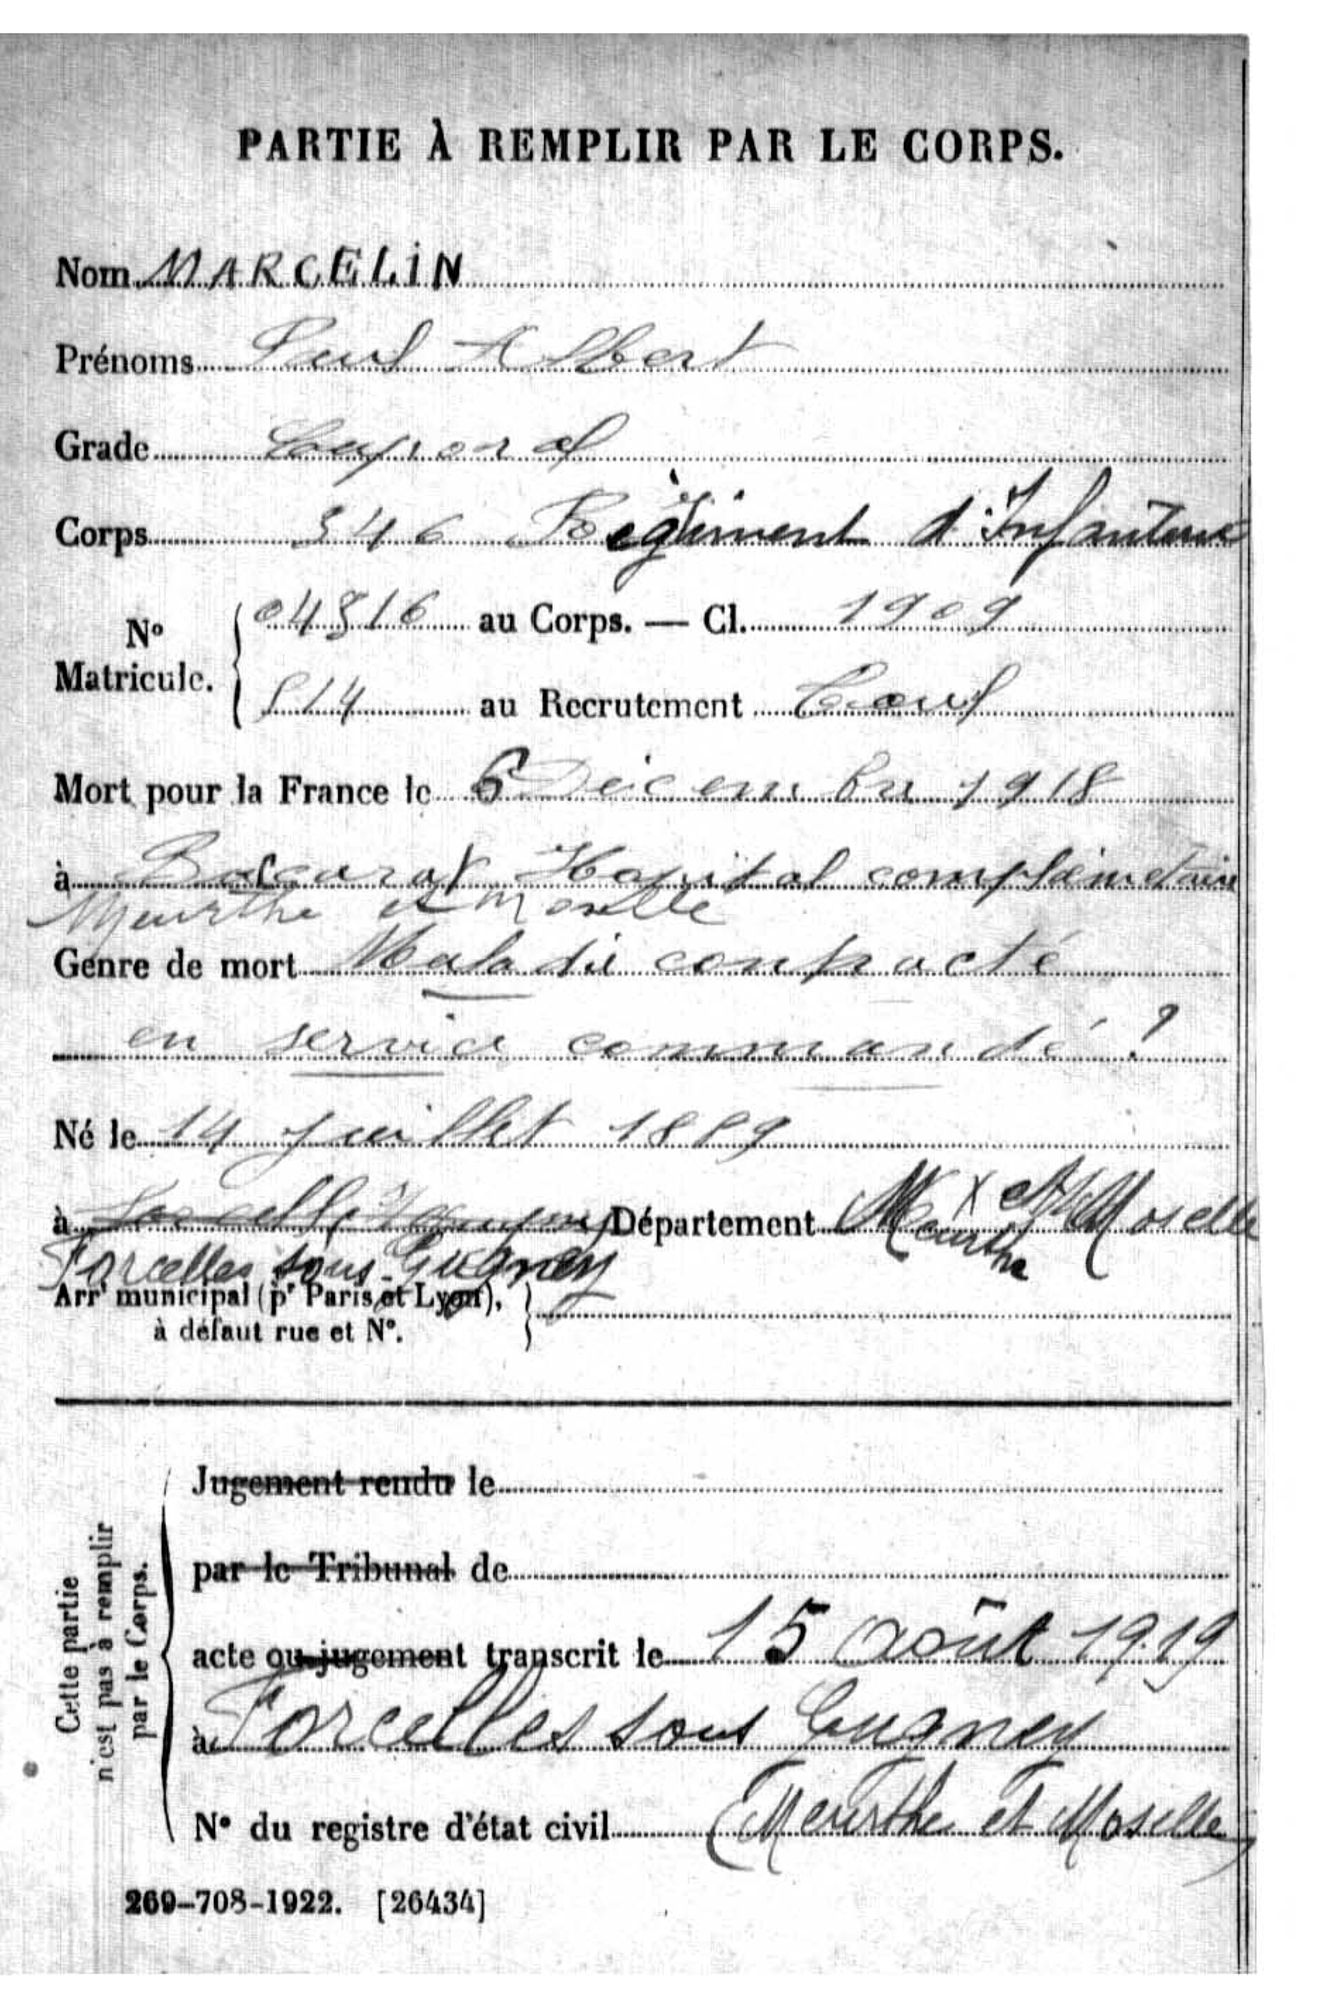 PARTIE À REMPLIR PAR LE CORPS.
Nom MARCELIN
Prénoms Paul Albert
Grade Caporal
Corps 346 Régiment d'Infanterie
N° Matricule. 04816 au Corps. — Cl. 1909
814 au Recrutement Toul
Mort pour la France le 6 Décembre 1918
à Baccarat Hopital complémentaire
Meurthe et Moselle
Genre de mort Maladie contracté
en service commandé ?
Né le 14 Juillet 1889
à Département Meurthe et Moselle
Forcelles sous Gugney
Arrt municipal (pr Paris et Lyon),
à défaut rue et N°.
Jugement rendu le
par le Tribunal de
acte ou jugement transcrit le 15 août 1919
à Forcelles sous Gugney
N° du registre d'état civil (Meurthe et Moselle)
Cette partie
n'est pas à remplir
par le Corps.
269-708-1922. [26434]